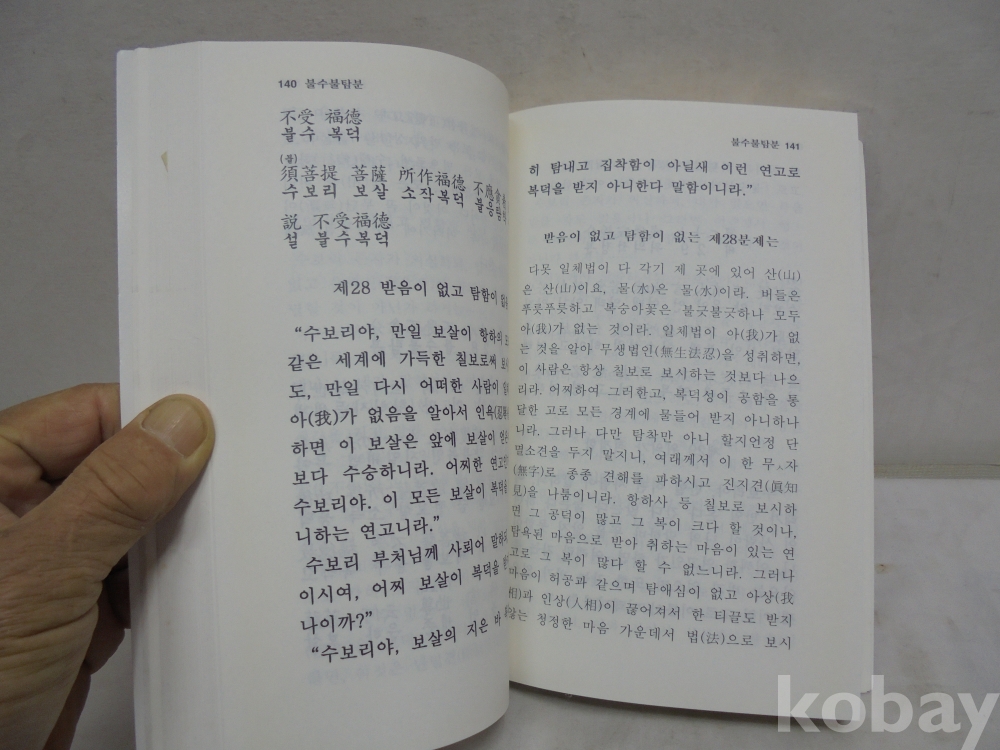 140 불수불탐분
不受 福德
불수 복덕
(불)
須菩提 菩薩 所作福德 不應貪
수보리 보살 소작복덕 불응탐
説 不受福德
설 불수복덕
제28 받음이 없고 탐함이
“수보리야, 만일 보살이 항하의
같은 세계에 가득한 칠보로써
도, 만일 다시 어떠한 사람이
아(我)가 없음을 알아서 인욕
하면 이 보살은 앞에 보살이
보다 수승하니라. 어찌한
수보리야. 이 모든 보살이 복덕을
니하는 연고니라.”
수보리 부처님께 사뢰어
이시여, 어찌 보살이 복덕을
나이까?”
“수보리야, 보살의 지은 바
불수불탐분 141
히 탐내고 집착함이 아닐새 이런 연고로
복덕을 받지 아니한다 말함이니라.”
받음이 없고 탐함이 없는 제28분제는
다못 일체법이 다 각기 제 곳에 있어 산(山)
은 산(山)이요, 물(水)은 물(水)이라. 버들은
푸릇푸릇하고 복숭아꽃은 불긋불긋하나 모두
아(我)가 없는 것이라. 일체법이 아(我)가 없
는 것을 알아 무생법인(無生法忍)을 성취하면,
이 사람은 항상 칠보로 보시하는 것보다 나으
리라. 어찌하여 그러한고, 복덕성이 공함을 통
달한 고로 모든 경계에 물들어 받지 아니하나
니라. 그러나 다만 탐착만 아니 할지언정 단
멸소견을 두지 말지니, 여래께서 이 한 무ㅅ자
(無字)로 종종 견해를 파하시고 진지견(眞知
見)을 나툼이니라. 항하사 등 칠보로 보시하
면 그 공덕이 많고 그 복이 크다 할 것이나,
탐욕된 마음으로 받아 취하는 마음이 있는 연
고로 그 복이 많다 할 수 없느니라. 그러나
마음이 허공과 같으며 탐애심이 없고 아상(我
相)과 인상(人相)이 끊어져서 한 티끌도 받지
않는 청정한 마음 가운데서 법(法)으로 보시
kobay